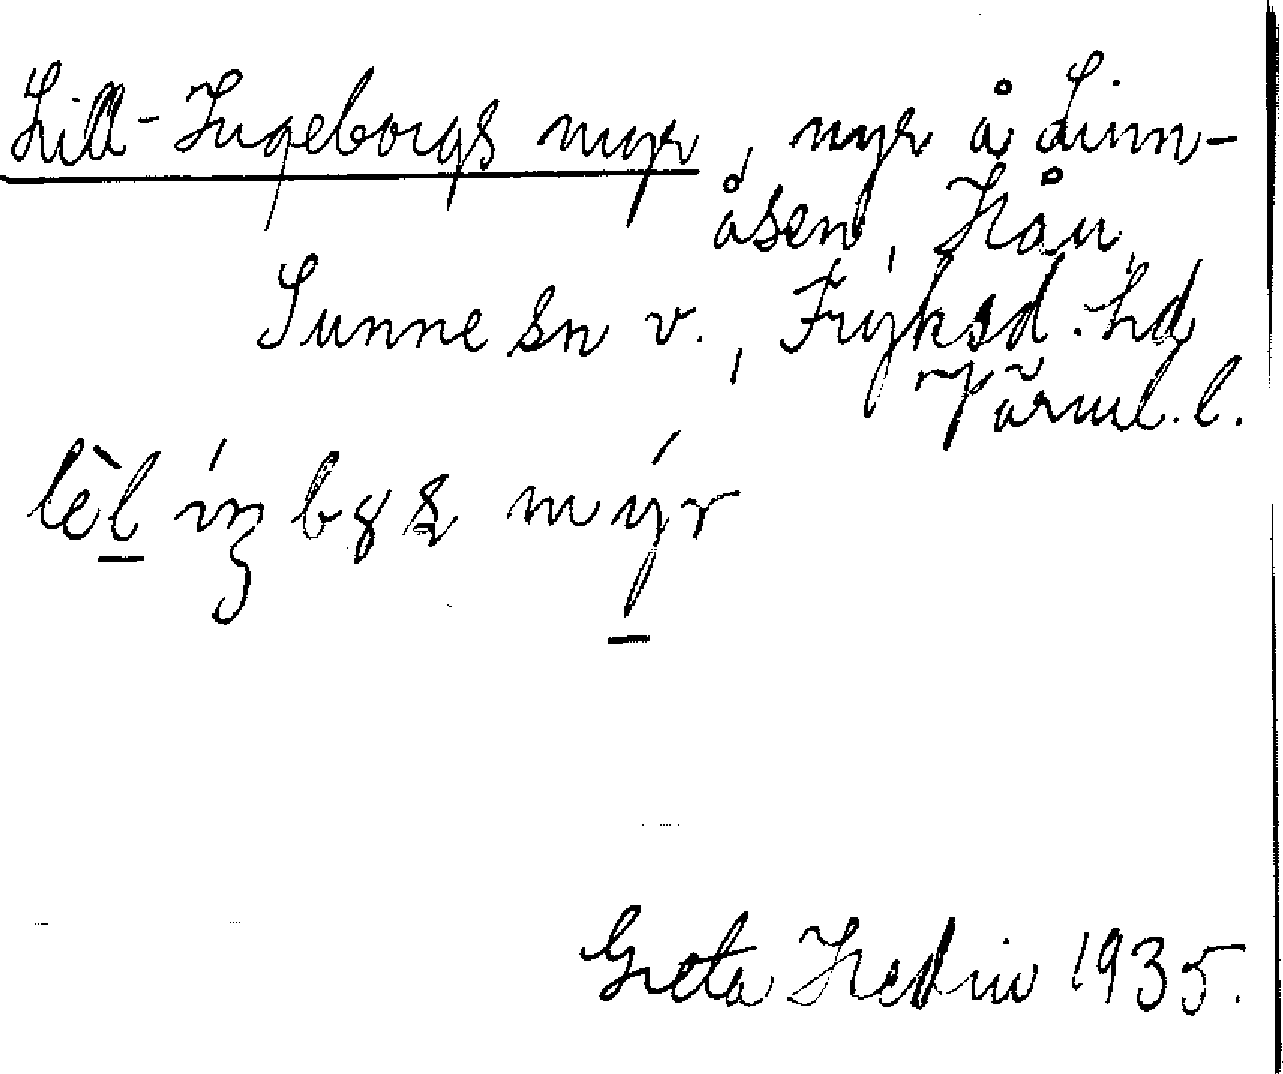 Lill-Ingeborgs myr, myr å Linn-
åsen, Hån,
Sunne sn v., Fryksd. hd
Värml. l.
lèl íŋbȣs mýr
Greta Hedin 1935.